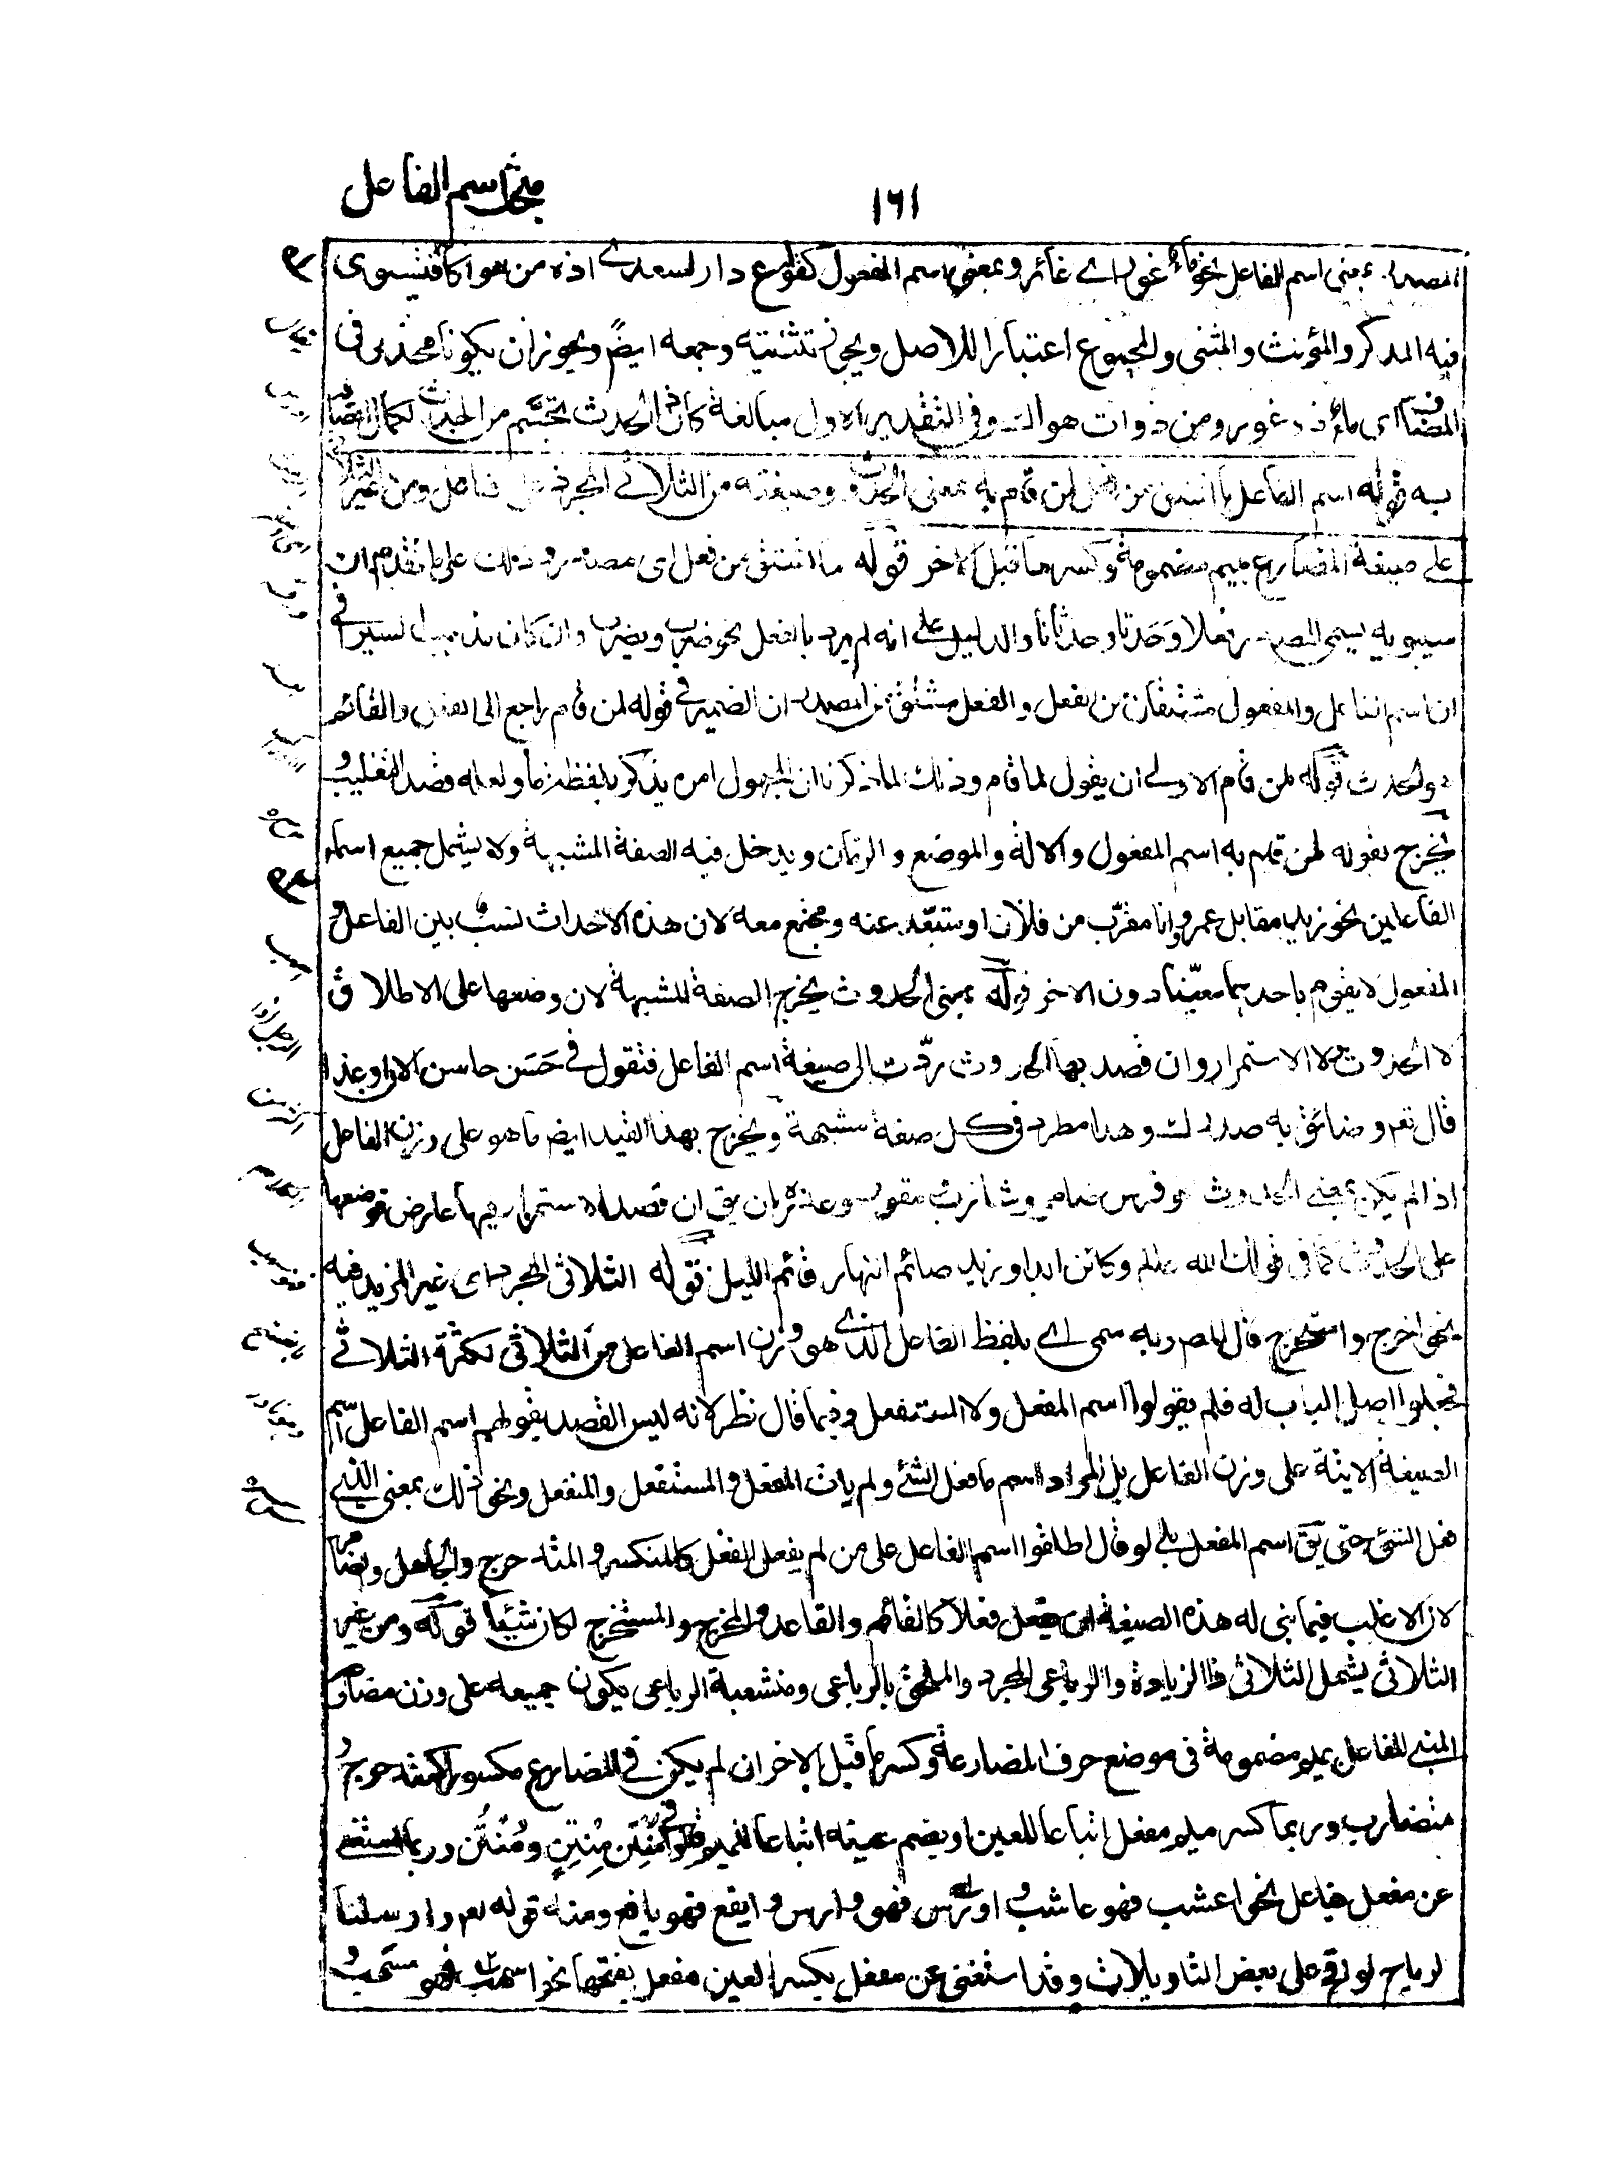 مبحث اسم الفاعل
١٦١
المصدر بمعنى اسم الفاعل نحو ماء غور اى غائر وبمعنى اسم المفعول كقوله ع دار لسعدى اذه من هواكا فيستوى
فيه المذكر والمؤنث والمثنى والمجموع اعتبارا للاصل ويجئ تثنيته وجمعه ايضً ويجوز ان يكونا محذوفى
المضاف اى ماء ذو غور ومن ذوات هواك وفى التقدير الاول مبالغة كان الحدث تجسّم من لكمال
به قوله اسم الفاعل ما اشتق من فعل لمن قام به بمعنى الحدوث وصيغته من الثلاثى المجرد على فاعل ومن غير الثلاثى
على صيغة المضارع بميم مضمومة وكسر ما قبل الاخر قوله ما اشتق من فعل اى مصدر وذلك على ما تقدم ان
سيبويه يسمى المصدر فعلا وحَدَثا وحدثانا والدليل على انه لم يرد بالفعل نحو ضرب ويضرب وان كان مذهب السيرافى
ان اسم الفاعل والمفعول مشتقان من الفعل والفعل مشتق من المصدر ان الضمير فى قوله لمن قام راجع الى الفعل والقائم
هو الحدث قوله لمن قام الاولى ان يقول لما قام وذلك لما ذكرنا ان المجهول امره يذكر بلفظ ما ولعله قصد التغليب و
يخرج بقوله لمن قام به اسم المفعول والالة والموضع والزمان ويدخل فيه الصفة المشبهة ولا يشمل جميع اسماء
الفاعلين نحو زيد مقابل عمرو وانا مقرّب من فلان او متبعّد عنه ومجتمع معه لان هذه الاحداث نسب بين الفاعل و
المفعول لا يقوم باحدهما معيّنا دون الاخر قوله بمعنى الحدوث يخرج الصفة المشبهة لان وضعها على الاطلاق
لا الحدوث لا الاستمرار وان قصد بها الحدوث ردّت الى صيغة اسم الفاعل فتقول فى حَسَن حاسن الان او غدا
قال تعم وضائق به صدرك وهذا مطرد فى كل صفة مشبهة ويخرج بهذا القيد ايض ما هو على وزن الفاعل
اذا لم يكن بمعنى الحدوث نحو فرس ضامر وشازب ومقور وعذره ان يق ان قصد الاستمرار فيها عارض فوضعها
على الحدوث كما فى قولك الله عالم وكائن ابدا وزيد صائم النهار قائم الليل قوله الثلاثى المجرد اى غير المزيد فيه
نحو اخرج واستخرج قال المصر وبه سمى اى بلفظ الفاعل الذى هو وزن اسم الفاعل من الثلاثى لكثرة الثلاثى
فجعلوا اصل الباب له فلم يقولوا اسم المفعل ولا المستفعل وفيما قال نظر لانه ليس القصد بقولهم اسم الفاعل اسم
الصيغة الاتية على وزن الفاعل بل المراد اسم ما فعل الشئ ولم يات المفعل والمستفعل والمنفعل ونحو ذلك بمعنى الذى
فعل الشئ حتى يق اسم المفعل بلى لو قال اطلقوا اسم الفاعل على من لم يفعل الفعل كالمنكسر والمتدحرج والجاهل والضامر
لان الاغلب فيما بنى له هذه الصيغة ان يفعل فعلا كالقائم والقاعد والمخرج والمستخرج لكان شيئاً قوله ومن غير
الثلاثى يشمل الثلاثى ذا الزيادة والرباعى المجرد والملحق بالرباعى ومنشعبة الرباعى يكون جميعه على وزن مضارعه
المبنى للفاعل بميم مضمومة فى موضع حرف المضارعة وكسر ما قبل الاخر ان لم يكن فى المضارع مكسورا كمتدحرج و
متضارب وربما كسر ميم مفعل اتباعا للعين او يضم عينه اتباعا للميم قالوا فى مُنْتِن مِنْتِن ومُنْتُن وربما استغنى
عن مفعل بفاعل نحو اعشب فهو عاشب و اورس فهو وارس و ايفع فهو يافع ومنه قوله تعم وارسلنا
الرياح لواقح على بعض التاويلات وقد استغنى عن مفعل بكسر العين بمفعل بفتحها نحو اسهب فهو مسهَب و